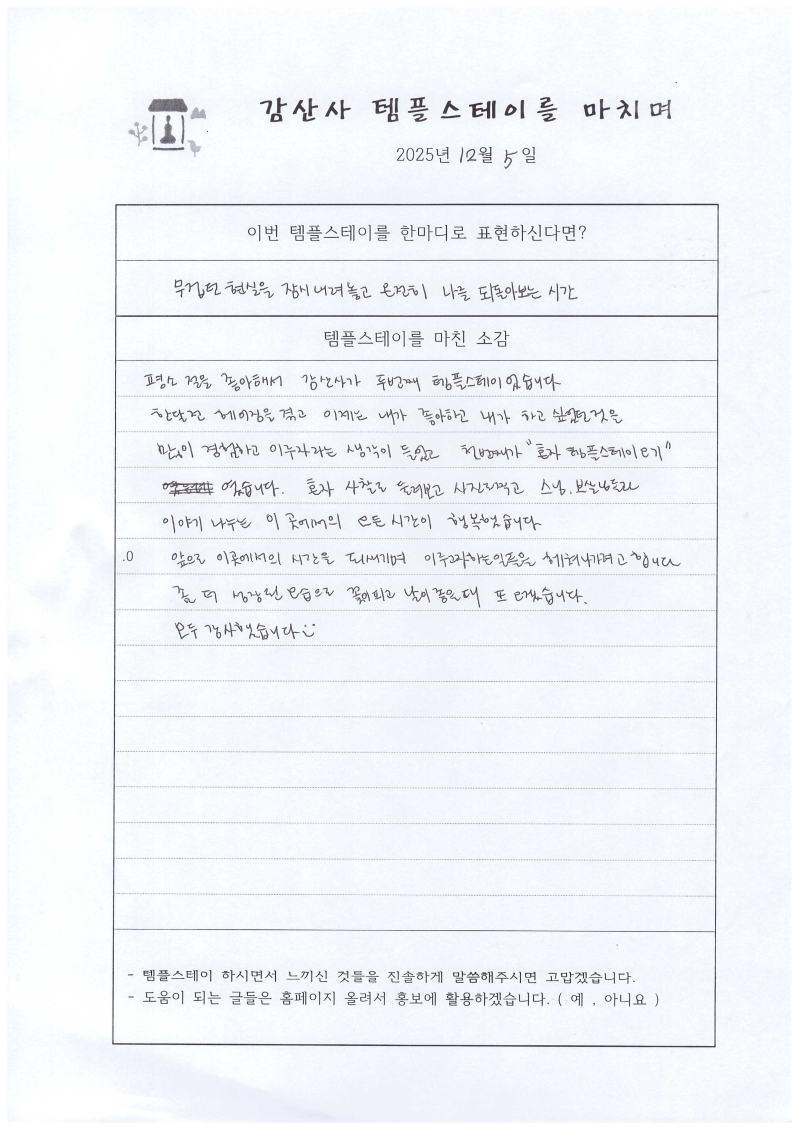 감산사 템플스테이를 마치며
2025년 12월 5일
이번 템플스테이를 한마디로 표현하신다면?
무겁던 현실을 잠시 내려놓고 온전히 나를 되돌아보는 시간
템플스테이를 마친 소감
평소 절을 좋아해서 감산사가 두번째 템플스테이였습니다
한달전 헤어짐을 겪고 이제는 내가 좋아하고 내가 하고싶었던것을
많이 경험하고 이루자라는 생각이 들었고 첫번째가 "혼자 템플스테이하기"
였습니다. 혼자 사찰도 둘러보고 사진도찍고 스님, 보살님들과
이야기 나누는 이 곳에서의 모든 시간이 행복했습니다
.0 앞으로 이곳에서의 시간을 되새기며 이루고자하는일들을 헤쳐나가려고 합니다
좀 더 성장된 모습으로 꽃이피고 날이좋을때 또 오겠습니다.
모두 감사했습니다
- 템플스테이 하시면서 느끼신 것들을 진솔하게 말씀해주시면 고맙겠습니다.
- 도움이 되는 글들은 홈페이지 올려서 홍보에 활용하겠습니다. ( 예 , 아니요 )